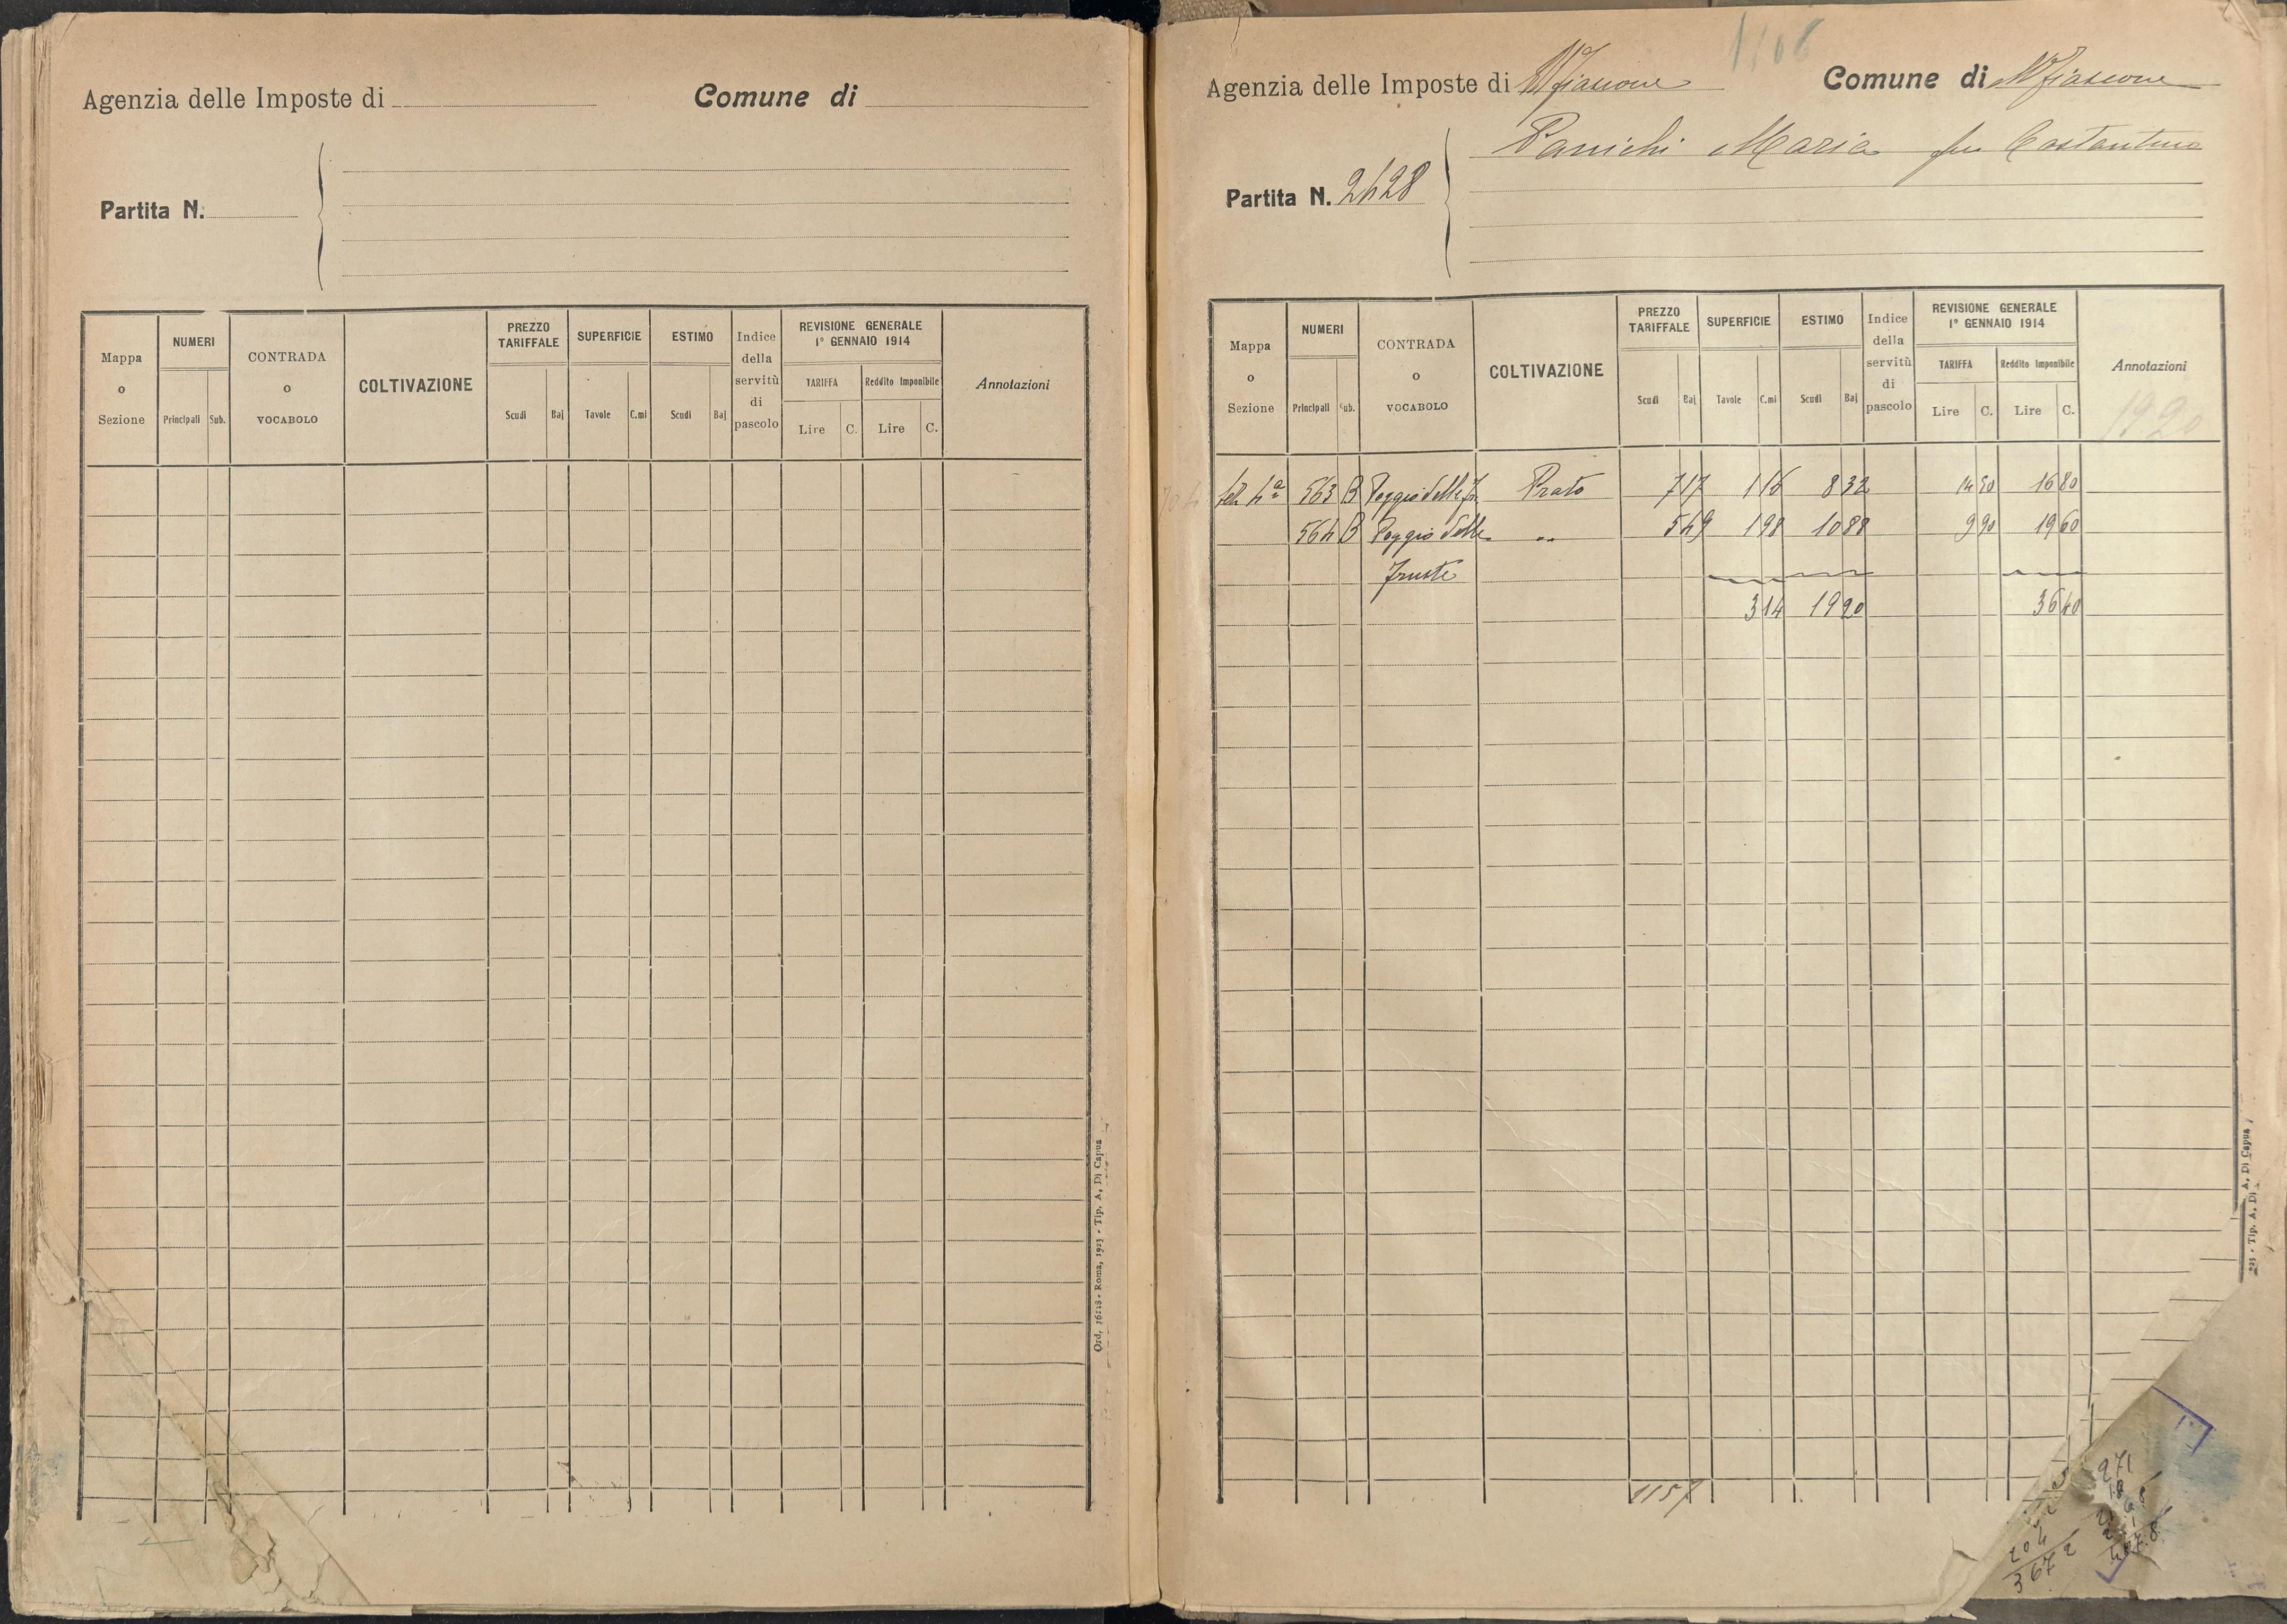 Agenzia delle Imposte di
Comune di
Partita N.
Mappa o Sezione
NUMERI
Principali
Sub.
CONTRADA o VOCABOLO
COLTIVAZIONE
PREZZO TARIFFALE
Scudi
Baj
SUPERFICIE
Tavole
C.mi
ESTIMO
Scudi
Baj
Indice della servitù di pascolo
REVISIONE GENERALE
1° GENNAIO 1914
TARIFFA
Reddito Imponibile
Lire
C.
Lire
C.
Annotazioni
Ord. 16118 - Roma, 1923 - Tip. A. Di Capua
1106
Agenzia delle Imposte di Mfiascone
Comune di Mfiascone
Panichi Maria fu Costantino
Partita N. 2428
Mappa o Sezione
NUMERI
Principali
Sub.
CONTRADA o VOCABOLO
COLTIVAZIONE
PREZZO TARIFFALE
Scudi
Baj
SUPERFICIE
Tavole
C.mi
ESTIMO
Scudi
Baj
Indice della servitù di pascolo
REVISIONE GENERALE
1° GENNAIO 1914
TARIFFA
Reddito Imponibile
Lire
C.
Lire
C.
Annotazioni
1920
4ª 563 B Poggio delle Prato 7 17 1 16 8 32 14 50 16 80
564 B Poggio delle " 5 49 1 98 10 88 9 90 19 60
Fruste
3 14 19 20 36 40
1157
271
204
3672
A. Di Capua
Tip. A. Di